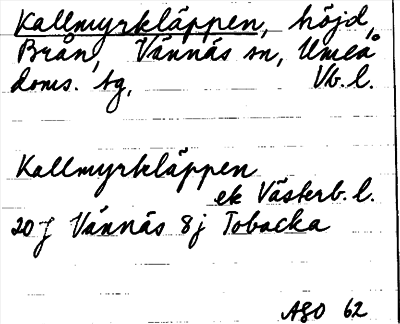 Kallmyrkläppen, höjd,
Brån, Vännäs sn, Umeå
doms. tg, Vb. l.
Kallmyrkläppen
ek Västerb. l.
20 J Vännäs 8 j Tobacka
ASO 62